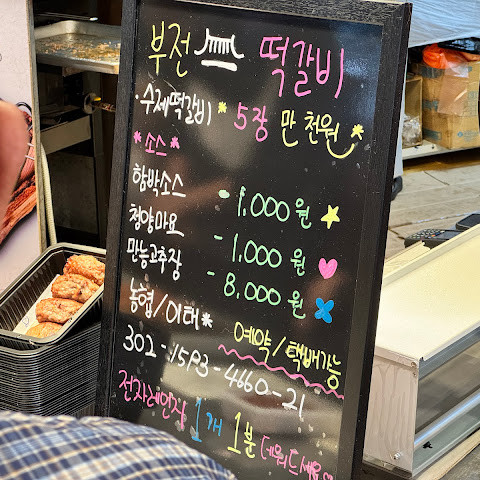 부전 떡갈비
·수제떡갈비* 5장 만 천원*
*소스*
함박소스 - 1.000원
청양마요 - 1.000원
만능고추장 - 8.000원
농협/이태*
예약/택배가능
302-1593-4660-21
전자레인지 1개 1분 데워드세요♡